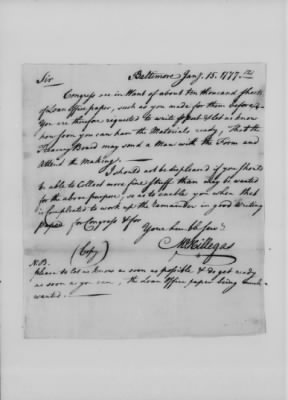 Sir Baltimore Jany. 15. 1777.
Congress are in Want of about ten thousand Sheets
of Loan Office paper, such as you made for them before &
You are therefore requested to write & let us know
how soon you can have the Materials ready, That the
Treasury Board may send a Man with the Form and
Attend the Making.
I should not be displeased if you should
be able to Collect more fine Stuff than may be wanted
for the above purpose, so as to enable you when that
is Compleated to work up the remainder in good Writing
paper for Congress &for
Your hum ble Servt
(Copy) M Hillegas
N.B.
Please to let us know as soon as possible & do get ready
as soon as you can, the Loan Office paper being much
wanted.